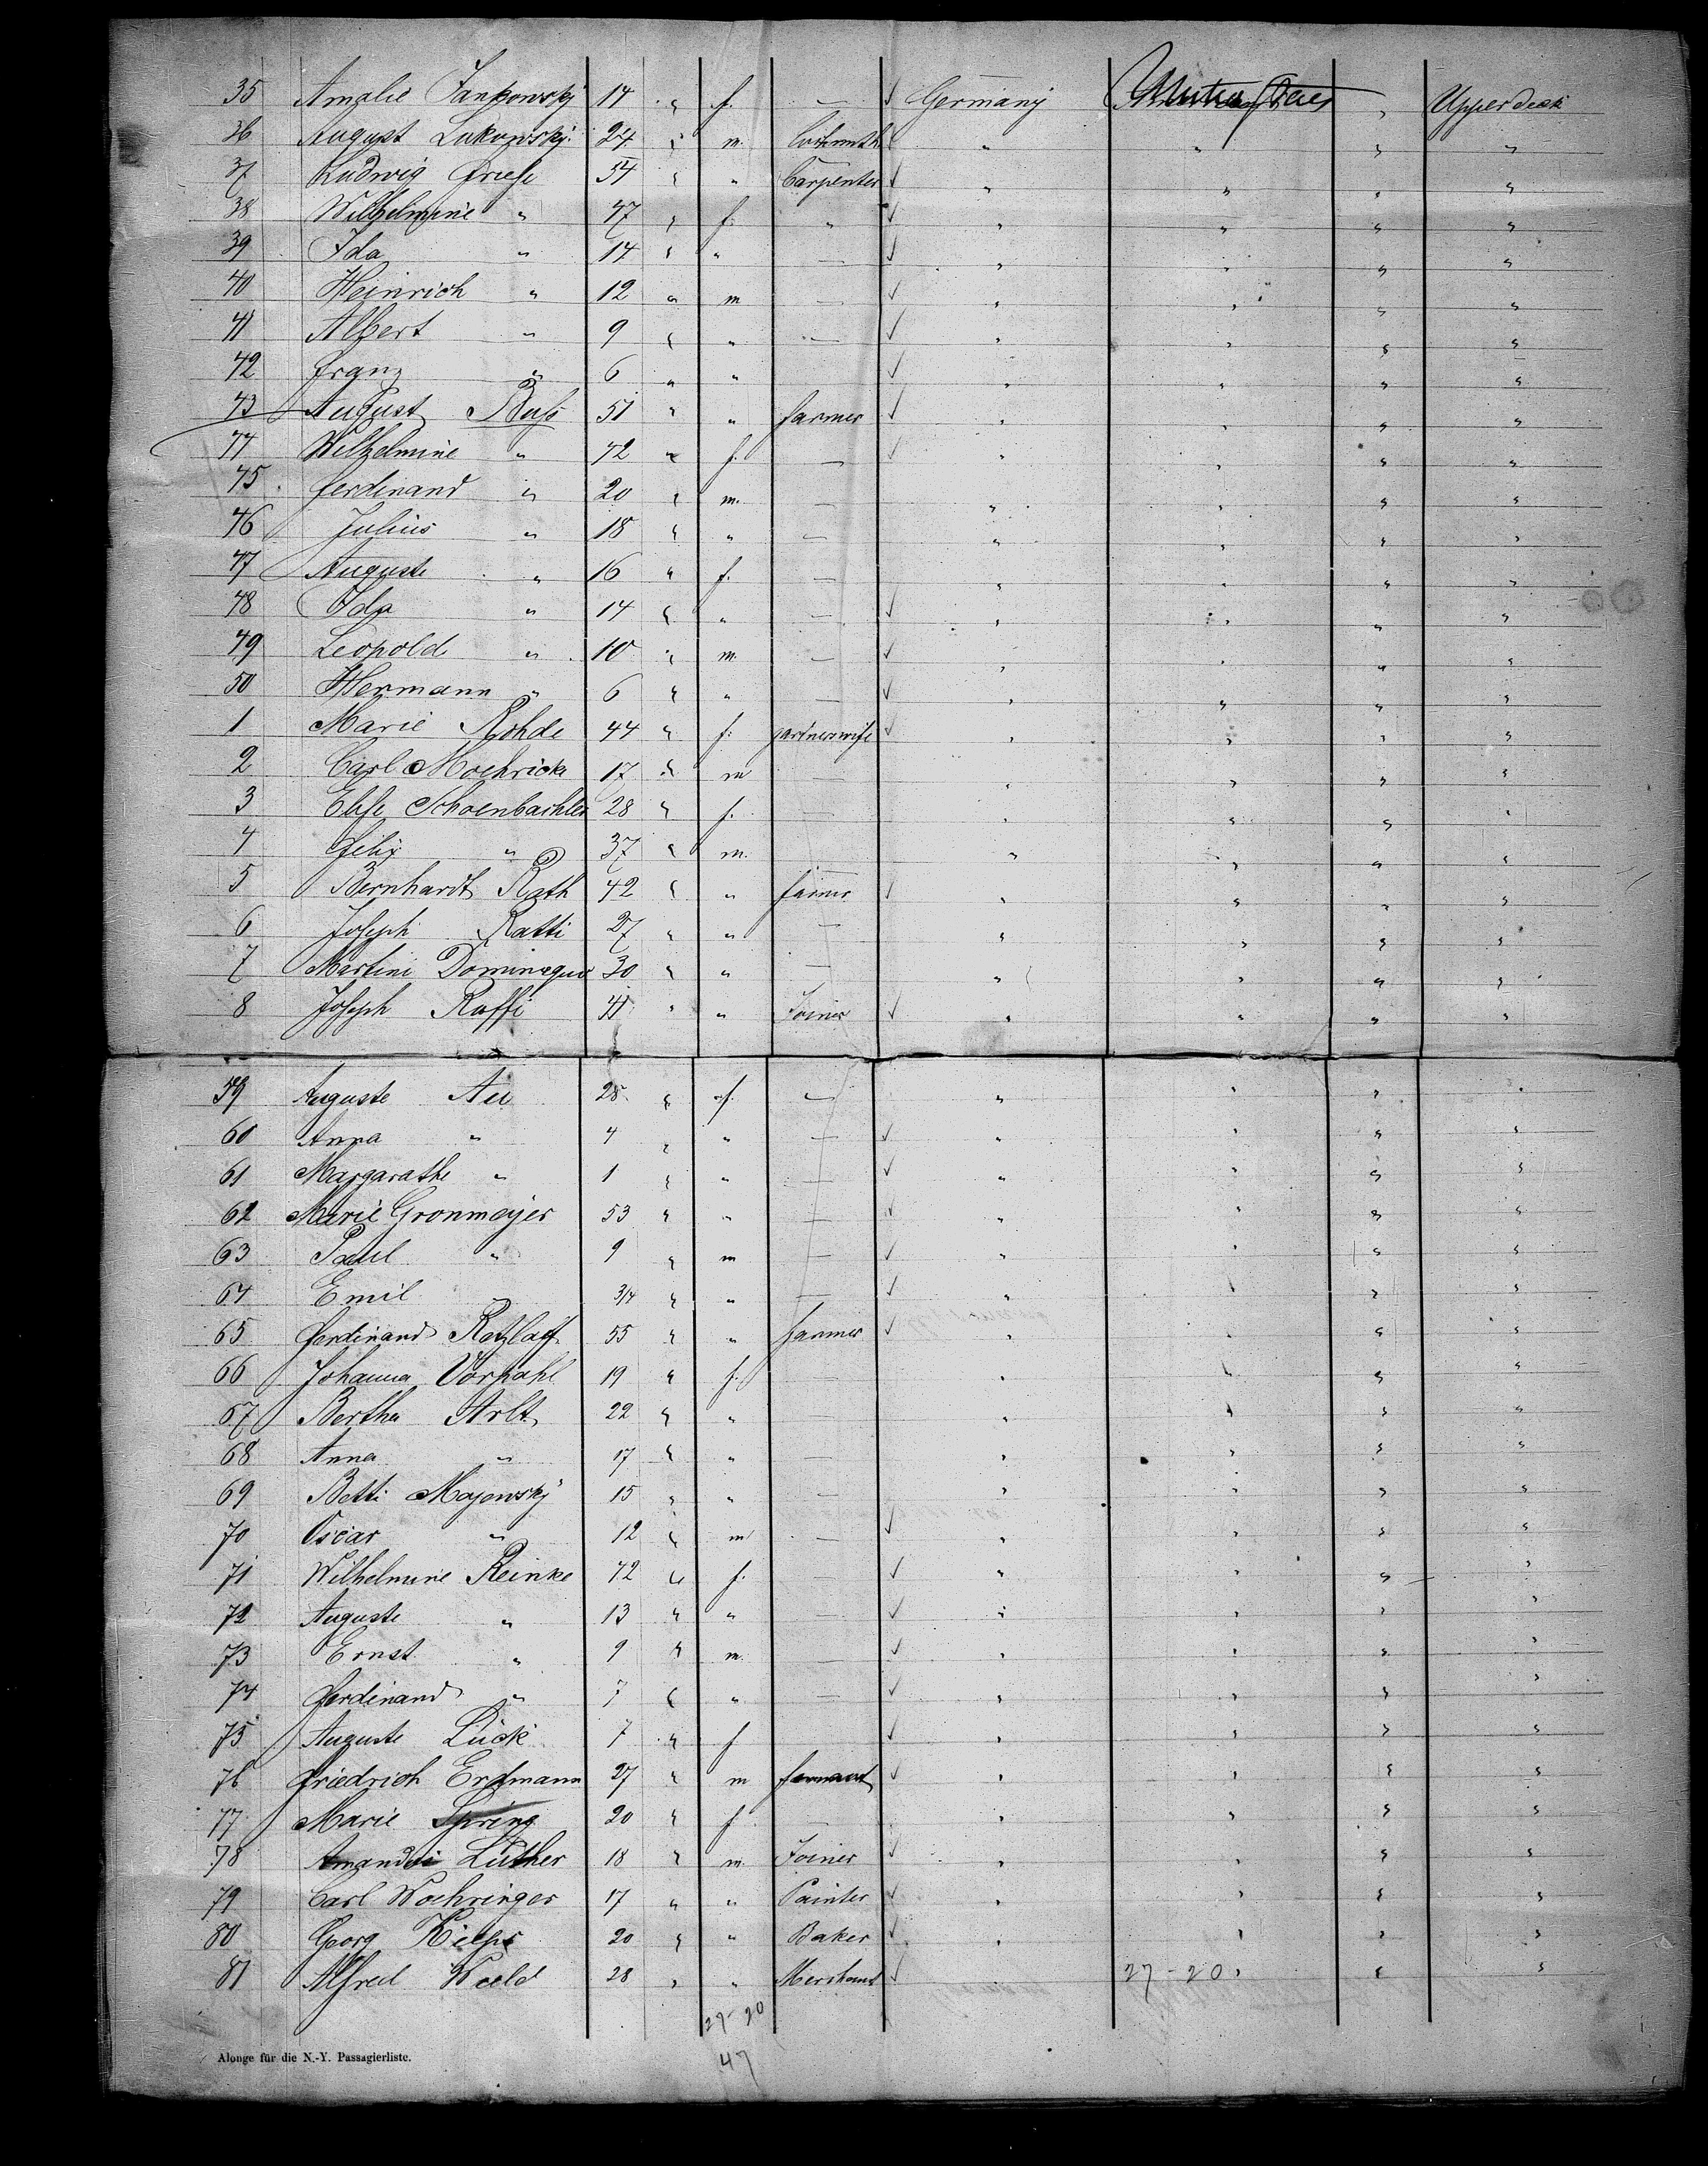 35 Amalie Jankowsky 14 " f. — ✓ Germany United States " Upper deck
36 August Lukowsky 24 " m. Locksmith ✓ " " " "
37 Ludwig Friese 54 " " Carpenter ✓ " " " "
38 Wilhelmine " 47 " f. " ✓ " " " "
39 Ida " 14 " " — ✓ " " " "
40 Heinrich " 12 " m — ✓ " " " "
41 Albert " 9 " " — ✓ " " " "
42 Franz " 6 " " ✓ " " " "
43 August Buss 51 " " farmer ✓ " " " "
44 Wilhelmine " 42 " f. — ✓ " " " "
45 Ferdinand " 20 " m. — " " " "
46 Julius " 18 " " — " " " "
47 Auguste " 16 " f. — " " " "
48 Ida " 14 " " — ✓ " " " "
49 Leopold " 10 " m. — ✓ " " " "
50 Hermann " 6 " " — ✓ " " " "
1 Marie Rohde 44 " f. ✓ " " " "
2 Carl Moehricke 17 " m — " " " "
3 Elise Schoenbachler 28 " f. — " " " "
4 Felix " 37 " m. " " " "
5 Bernhardt Rath 42 " " farmer ✓ " " " "
6 Joseph Ratti 27 " " — " " " "
7 Martini Dominique 30 " " — " " " "
8 Joseph Raffi 41 " " Joiner ✓ " " " "
59 Auguste Au 28 " f. — " " " "
60 Anna " 4 " " — ✓ " " " "
61 Margarathe " 1 " " — ✓ " " " "
62 Marie Gronmeyer 53 " " — ✓ " " " "
63 Paul " 9 " m — ✓ " " " "
64 Emil 3/4 " " — ✓ " " " "
65 Ferdinand Retzlaff 55 " " farmer ✓ " " " "
66 Johanna Vorpahl 19 " f. — " " " "
67 Bertha Arlt 22 " " — " " " "
68 Anna " 17 " " — " " " "
69 Betti Majewsky 15 " " — " " " "
70 Oscar " 12 " m — ✓ " " " "
71 Wilhelmine Reinke 42 " f. ✓ " " " "
72 Auguste " 13 " " — ✓ " " " "
73 Ernst " 9 " m. — ✓ " " " "
74 Ferdinand " 7 " " — ✓ " " " "
75 Auguste Lück 7 " f ✓ " " " "
76 Friedrich Erdmann 27 " m ✓ " " " "
77 Marie Spring 20 " f — " " " "
78 Luther 18 " m. Joiner ✓ " " " "
79 Carl Woehringer 17 " " Painter ✓ " " " "
80 Georg 20 " " Baker ✓ " " " "
81 Alfred Weeld 28 " " Merchant ✓ 27-20 " " "
27-20
47
Alonge für die N.-Y. Passagierliste.